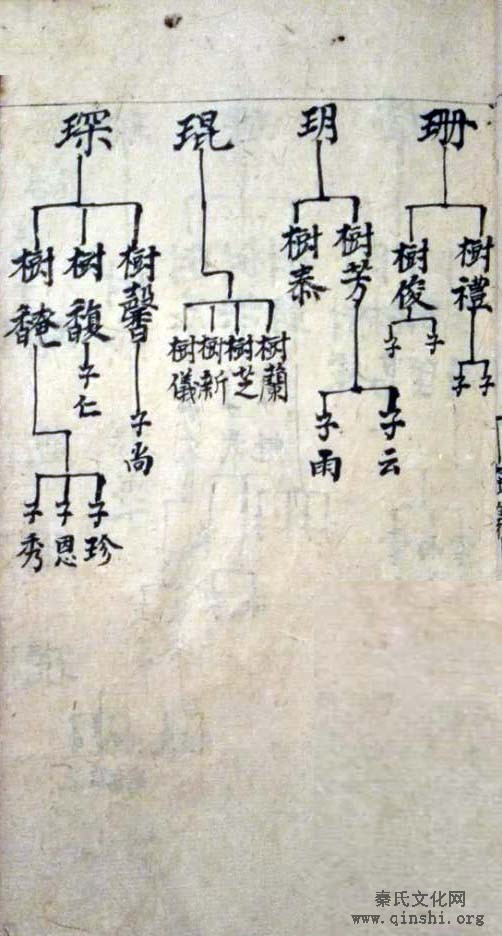 珊
玥
琨
琛
樹禮
樹俊
樹芳
樹泰
樹蘭
樹芝
樹新
樹儀
樹馨
樹馥
樹馣
子
子
子
子
子云
子雨
子尚
子仁
子珍
子恩
子秀
秦氏文化网
www.qinshi.org